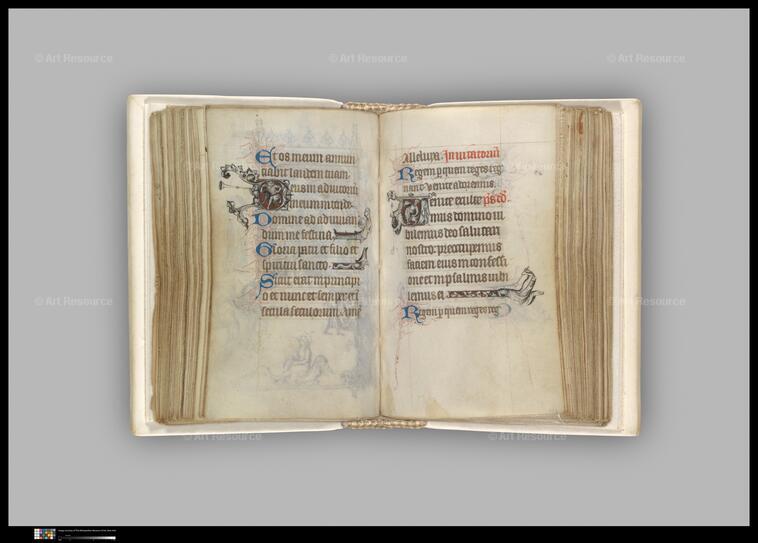 © Art Resource
© Art Resource
© Art Resource
Et os meum annun
ciabit laudem tuam
Deus in adiutoriu
meum intende
Domine ad adiuuan
dum me festina
Gloria patri et filio et
spiritui sancto
Sicut erat in principi
o et nunc et semper et i
secula seculorum. ame
Alleluya. Inuitatoriu
Regem p quem reges reg
nant venite adoremus.
Venite exulte ps. d.
mus domino iu
bilemus deo salutari
nostro preoccupemus
faciem eius in confessi
one et in psalmis iubi
lemus ei
Regem p quem reges reg
© Art Resource
© Art Resource
© Art Resource
© Art Resource
© Art Resource